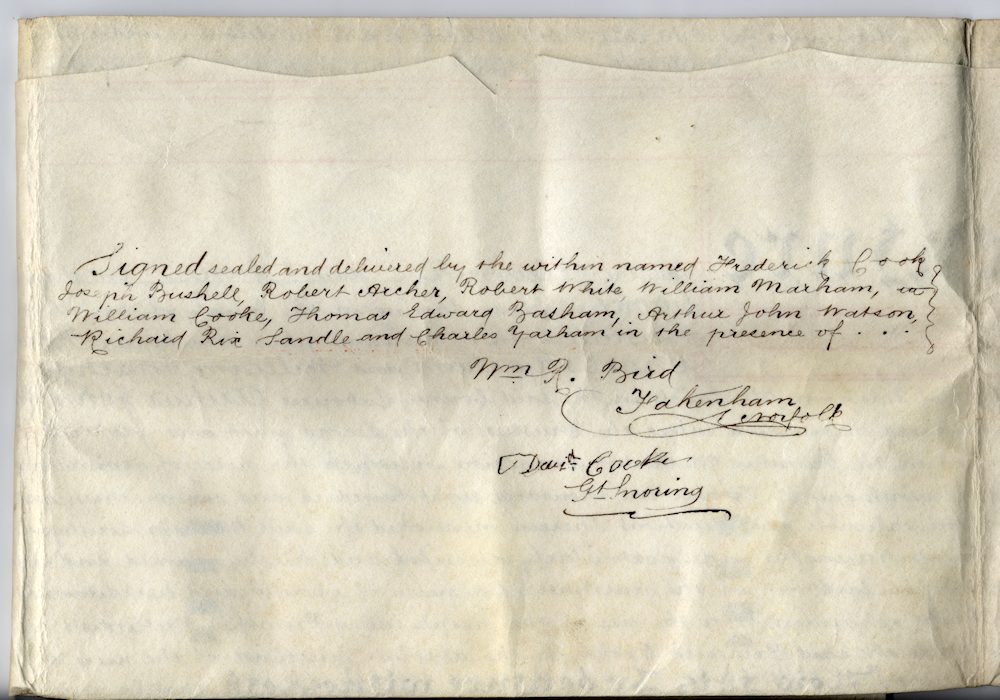 Signed sealed and delivered by the within named Frederick Cook
Joseph Bushell, Robert Archer, Robert White, William Marham,
William Cooke, Thomas Edward Basham, Arthur John Watson,
Richard Rix Sandle and Charles Yarham in the presence of . . .
Wm R. Bird
Fakenham
Norfolk
Cooke
Gt. Snoring